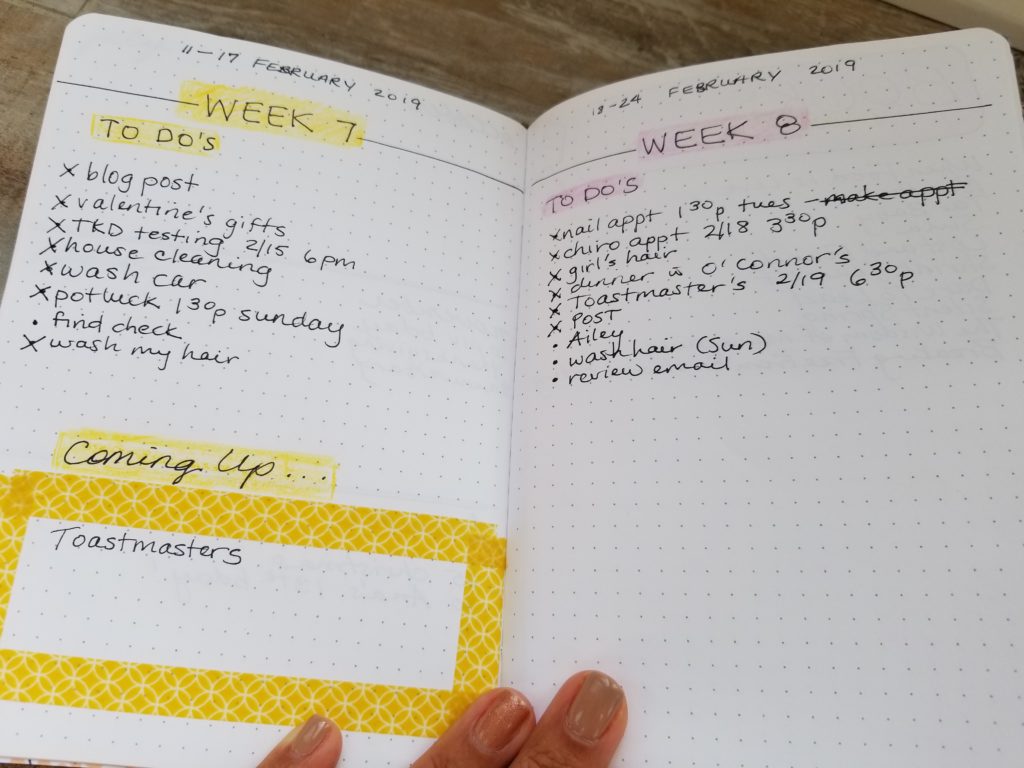 11-17 FEBRUARY 2019
WEEK 7
TO DO'S
x blog post
x valentine's gifts
x TKD testing 2/15 6pm
x house cleaning
x wash car
x potluck 130p sunday
• find check
x wash my hair
Coming Up....
Toastmasters
18-24 FEBRUARY 2019
WEEK 8
TO DO'S
x nail appt 130p tues - make appt
x chiro appt 2/18 330p
x girl's hair
x dinner w O'Connor's
x Toastmaster's 2/19 630p
x POST
• Ailey
• wash hair (Sun)
• review email